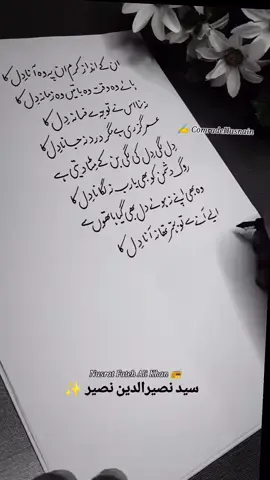 ان کے انداز کرم ان پہ وہ آنا دل کا
ہائے وہ وقت وہ باتیں وہ زمانہ دل کا
نہ سنا اس نے توجہ سے فسانہ دل کا
عمر گزری ہے مگر درد نہ جانا دل کا
✍️ ComradeHusnain
دل لگی دل کی لگی بن کے مٹا دیتی ہے
روگ دشمن کو بھی یارب نہ لگانا دل کا
وہ بھی اپنے نہ ہوئے دل بھی گیا ہاتھوں سے
ایسے آنے سے تو بہتر تھا نہ آنا دل کا
Nusrat Fateh Ali Khan 📻
سید نصیرالدین نصیر ✨